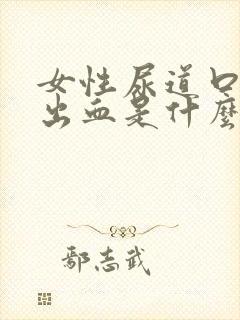 女性尿道口
出血是什麼
鄢志武